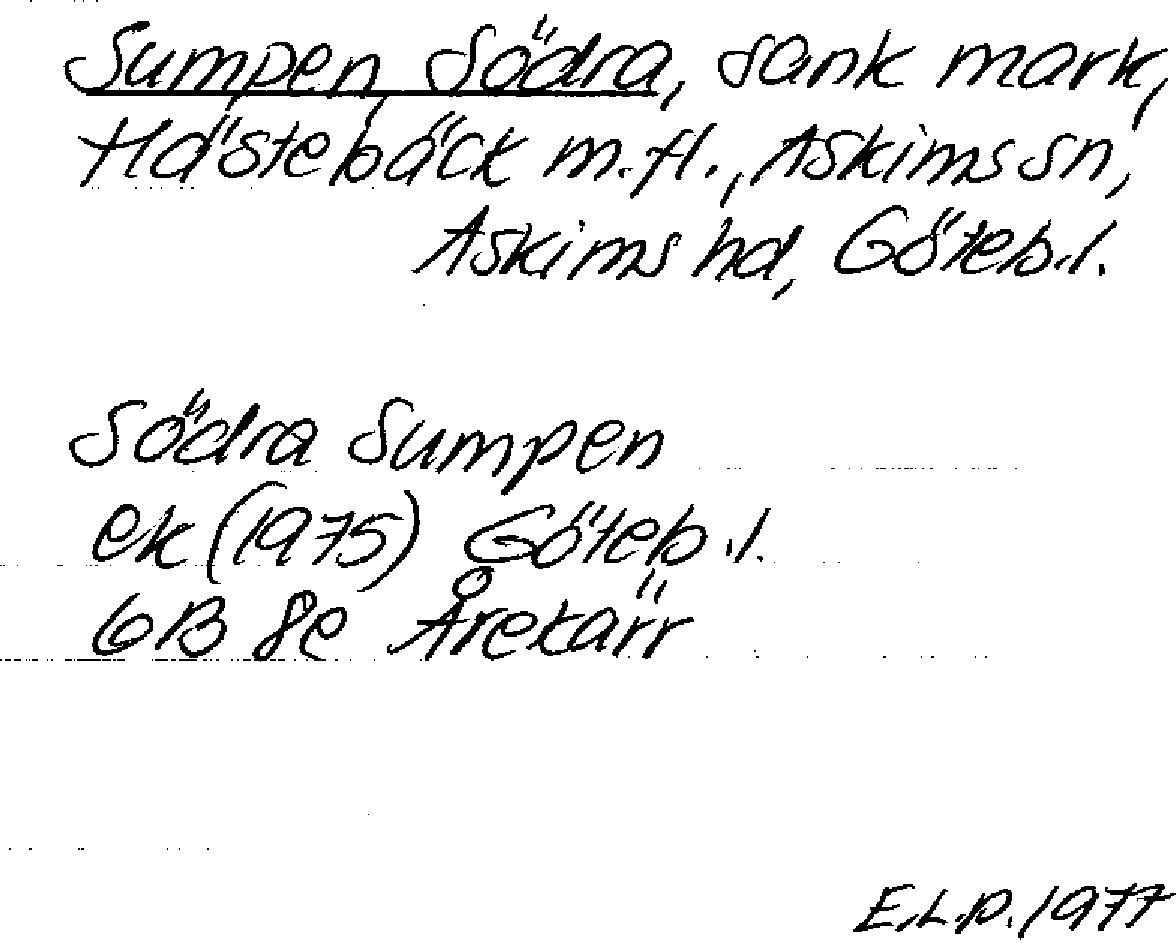 Sumpen, Södra, sank mark,
Hästebäck m.fl., Askims sn,
Askims hd, Göteb.l.
Södra Sumpen
ek (1975) Göteb.l.
6B 8e Årekärr
E.L.P. 1977